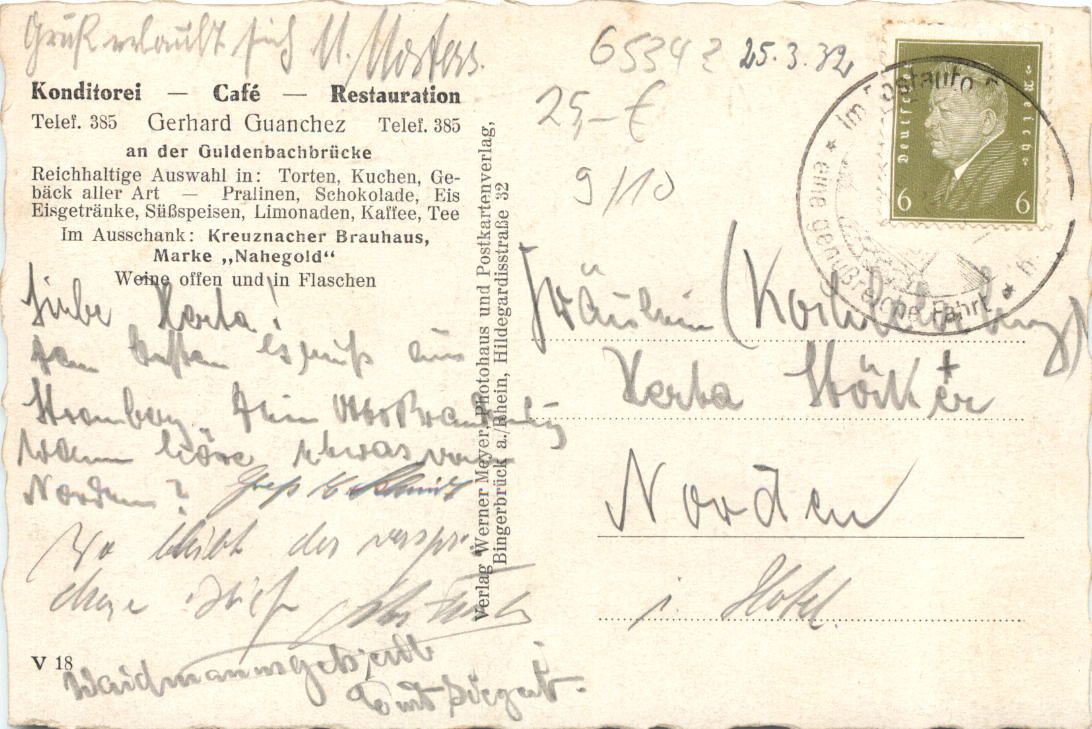 Gruß erlaubt sich
Konditorei — Café — Restauration
Telef. 385 Gerhard Guanchez Telef. 385
an der Guldenbachbrücke
Reichhaltige Auswahl in: Torten, Kuchen, Ge-
bäck aller Art — Pralinen, Schokolade, Eis
Eisgetränke, Süßspeisen, Limonaden, Kaffee, Tee
Im Ausschank: Kreuznacher Brauhaus,
Marke „Nahegold“
Weine offen und in Flaschen
Liebe Herta!
Den besten Gruß aus
Stromberg. Dein
Wann höre etwas von
Norden? Gruß
Wo bleibt der verspro
chene Brief
V 18
Waidmanns
Verlag Werner Meyer, Photohaus und Postkartenverlag,
Bingerbrück a./Rhein, Hildegardisstraße 32
25.3.32
25,- €
9/10
Deutsches Reich
6 6
Im Postauto
* eine genußreiche Fahrt *
Fräulein
Herta Störker
Norden
i. Hotel.